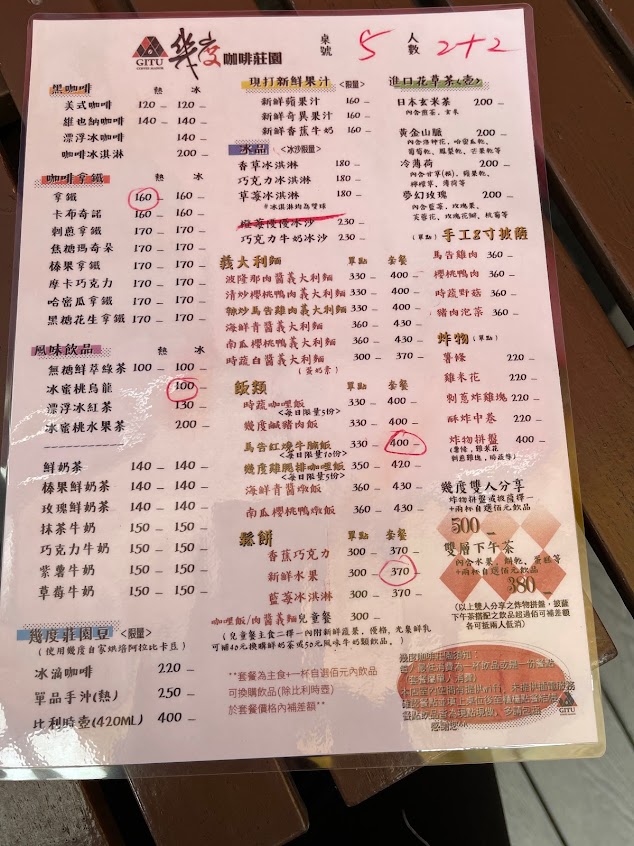 GITU
COFFEE MANOR
幾度咖啡莊園
桌號 5 人數 2+2
黑咖啡 熱 冰
美式咖啡 120 – 120 –
維也納咖啡 140 – 140 –
漂浮冰咖啡 140 –
咖啡冰淇淋 200 –
咖啡拿鐵 熱 冰
拿鐵 160 – 160 –
卡布奇諾 160 – 160 –
刺蔥拿鐵 170 – 170 –
焦糖瑪奇朵 170 – 170 –
榛果拿鐵 170 – 170 –
摩卡巧克力 170 – 170 –
哈密瓜拿鐵 170 – 170 –
黑糖花生拿鐵 170 – 170 –
風味飲品 熱 冰
無糖鮮萃綠茶 100 – 100 –
冰蜜桃烏龍 100 –
漂浮冰紅茶 130 –
冰蜜桃水果茶 200 –
鮮奶茶 140 – 140 –
榛果鮮奶茶 140 – 140 –
玫瑰鮮奶茶 140 – 140 –
抹茶牛奶 150 – 150 –
巧克力牛奶 150 – 150 –
紫薯牛奶 150 – 150 –
草莓牛奶 150 – 150 –
幾度莊園豆 <限量>
(使用幾度自家烘培阿拉比卡豆)
冰滴咖啡 220 –
單品手沖(熱) 250 –
比利時壺(420ML) 400 –
現打新鮮果汁 <限量>
新鮮蘋果汁 160 –
新鮮奇異果汁 160 –
新鮮香蕉牛奶 160 –
冰品 <冰沙限量>
香草冰淇淋 180 –
巧克力冰淇淋 180 –
草莓冰淇淋 180 –
*冰淇淋均為雙球
230 –
巧克力牛奶冰沙 230 –
義大利麵 單點 套餐
波隆那肉醬義大利麵 330 – 400 –
清炒櫻桃鴨肉義大利麵 330 – 400 –
辣炒馬告雞肉義大利麵 330 – 400 –
海鮮青醬義大利麵 360 – 430 –
南瓜櫻桃鴨義大利麵 360 – 430 –
時蔬白醬義大利麵 300 – 370 –
(蛋奶素)
飯類 單點 套餐
時蔬咖哩飯 330 – 400 –
<每日限量5份>
幾度鹹豬肉飯 330 – 400 –
馬告紅燒牛腩飯 330 – 400 –
<每日限量10份>
幾度雞腿排咖哩飯 350 – 420 –
<每日限量5份>
海鮮青醬燉飯 360 – 430 –
南瓜櫻桃鴨燉飯 360 – 430 –
鬆餅 單點 套餐
香蕉巧克力 300 – 370 –
新鮮水果 300 – 370 –
藍莓冰淇淋 300 – 370 –
咖哩飯/肉醬麵兒童餐 300 –
(兒童餐主食二擇一內附新鮮蔬菜，優格，光泉鮮乳
可補40元換購鮮奶茶或50元風味牛奶類飲品)
**套餐為主食+一杯自選佰元內飲品
可換購飲品(除比利時壺)
於套餐價格內補差額**
進口花草茶(壺)
日本玄米茶 200 –
內含煎茶、玄米
黃金山脈 200 –
內含洛神花、哈密瓜乾、
葡萄乾、鳳梨乾、芒果乾等
冷薄荷 200 –
內含甘草(根)、蘋果乾、
檸檬草、薄荷等
夢幻玫瑰 200 –
內含藍莓、玫瑰果、
芙蓉花、玫瑰花瓣、桃莓等
(單點) 手工8寸披薩
馬告雞肉 360 –
櫻桃鴨肉 360 –
時蔬野菇 360 –
豬肉泡菜 360 –
炸物 (單點)
薯條 220 –
雞米花 220 –
刺蔥炸雞塊 220 –
酥炸中卷 220 –
炸物拼盤 400 –
(薯條，雞米花
刺蔥雞塊，時蔬等)
幾度雙人分享
炸物拼盤或披薩擇一
+兩杯自選佰元飲品
500 –
雙層下午茶
內含水果、餅乾、蛋糕等
+兩杯自選佰元飲品
380 –
(以上雙人分享之炸物拼盤，披薩
下午茶搭配之飲品超過佰可補差額
各可抵兩人低消)
感謝您
GITU